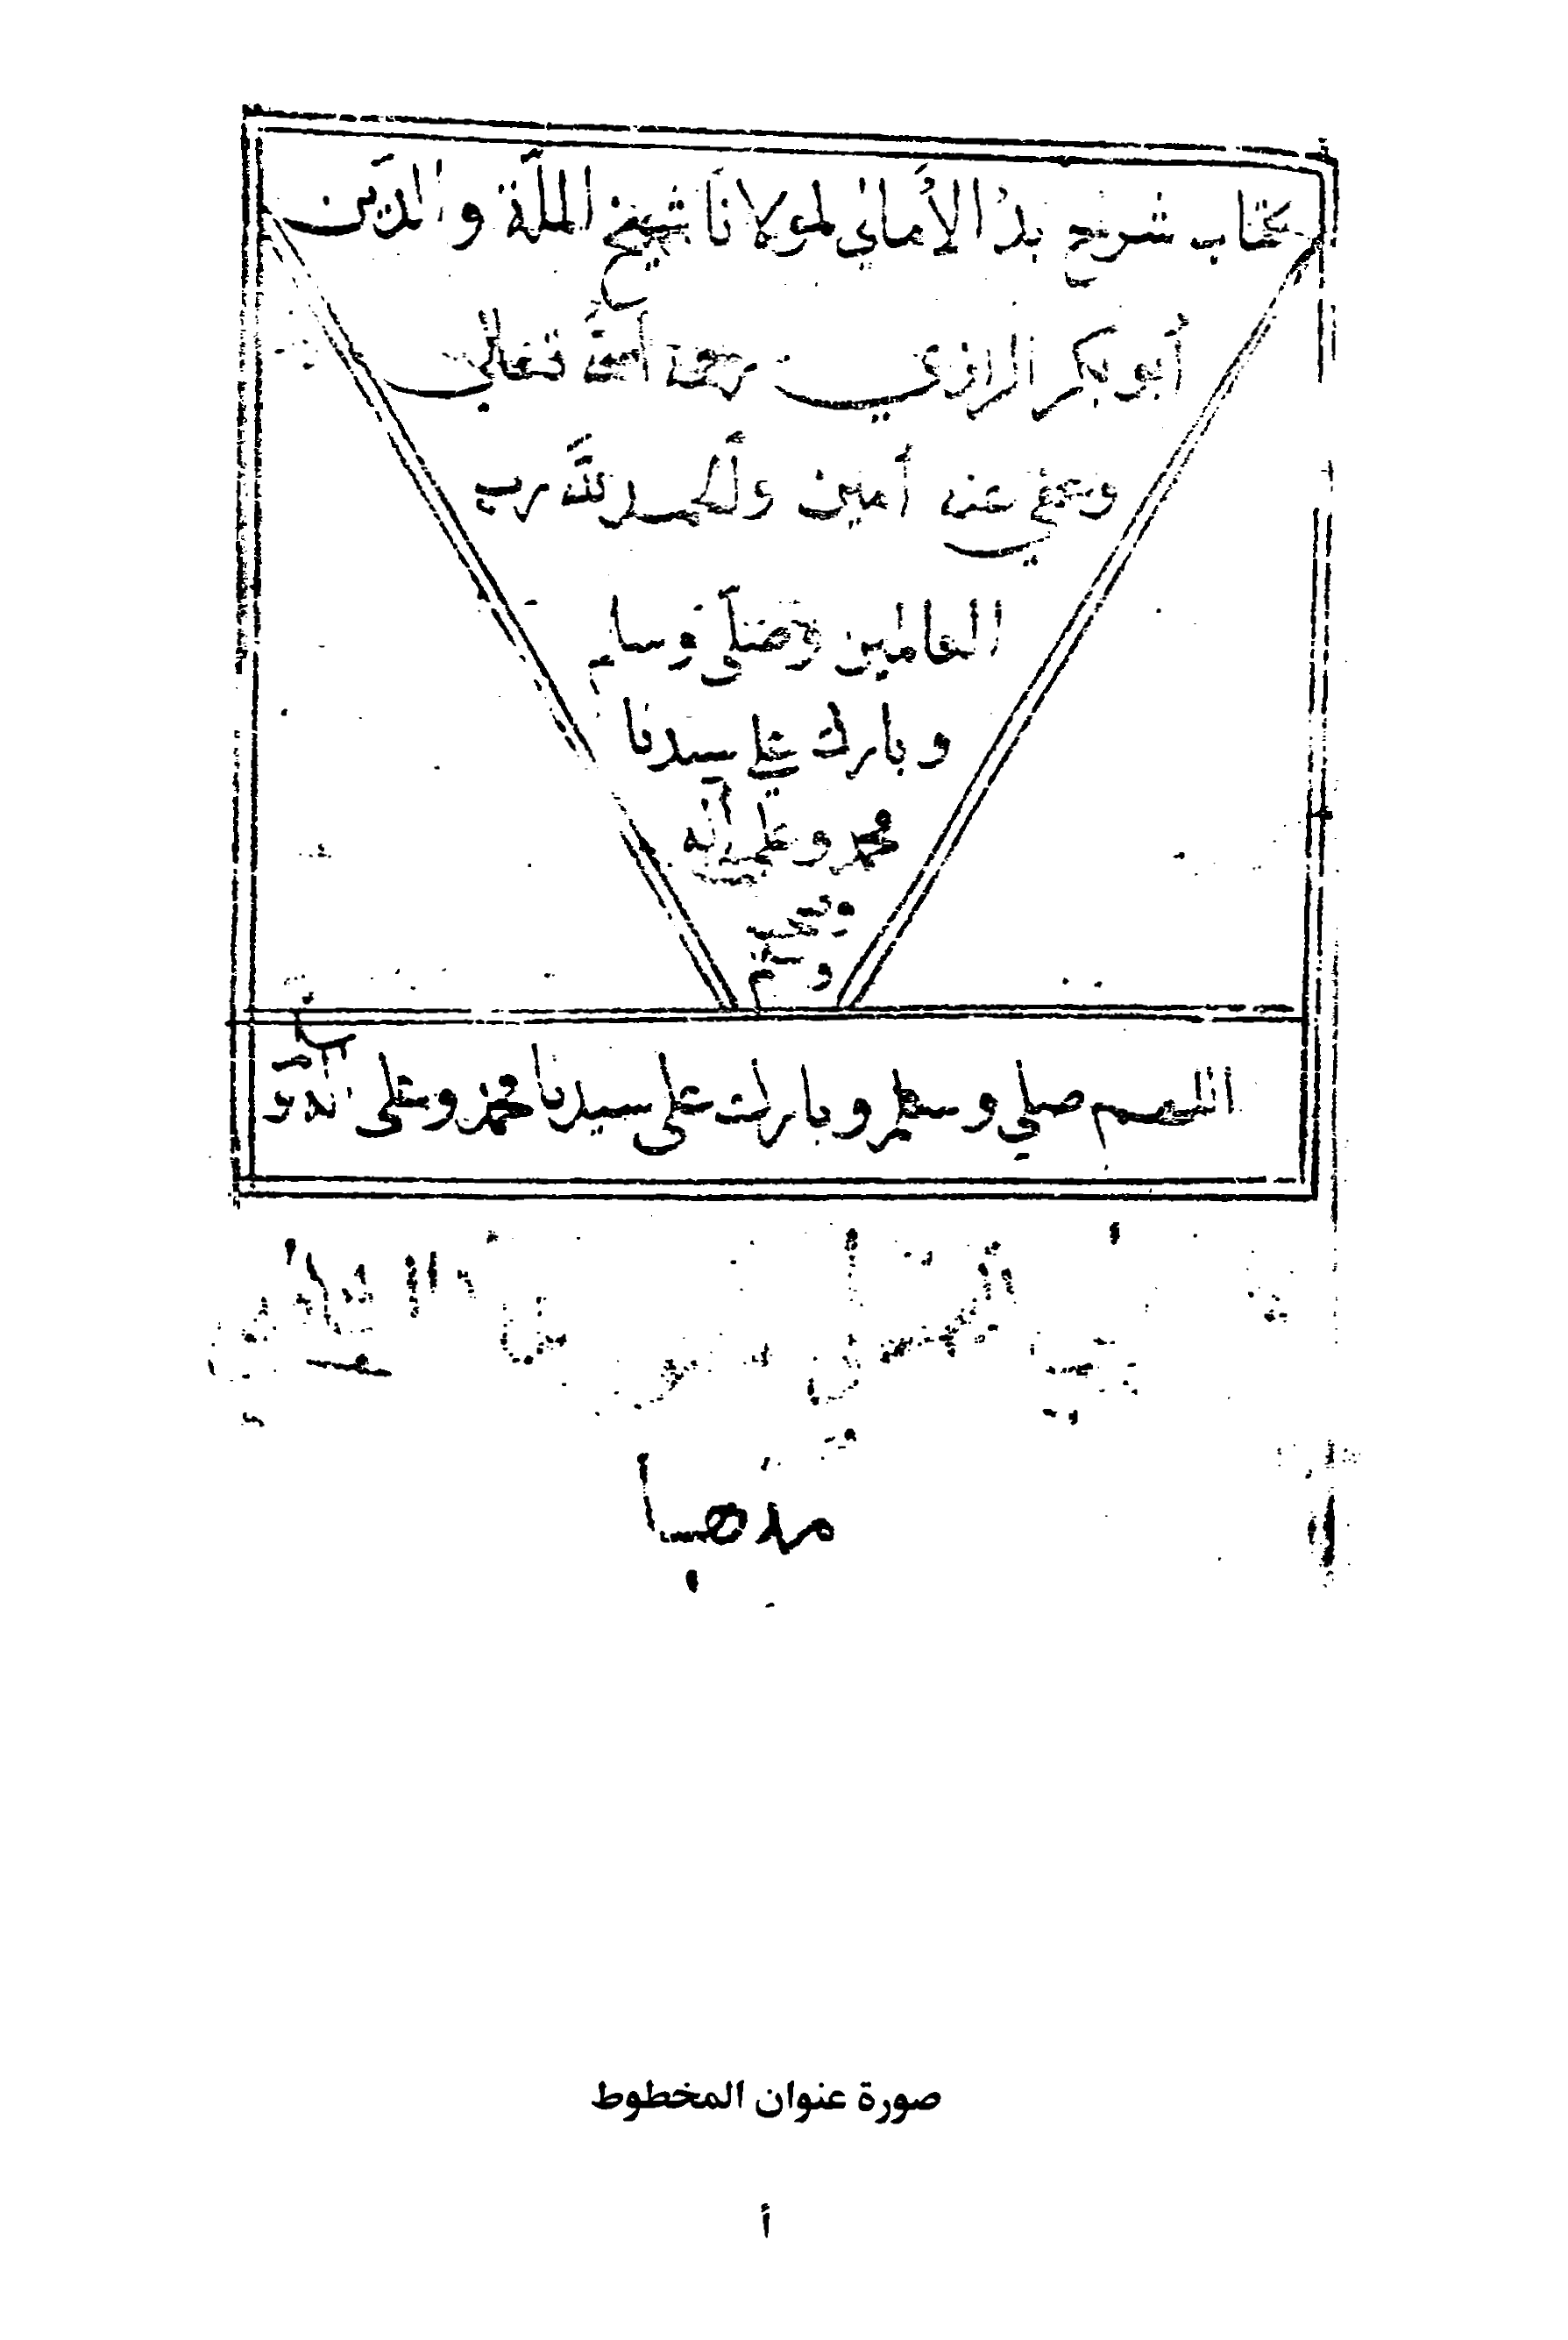 كتاب شرح بدْ الأَماني لمولانا شيخ الملّة والدّين
أبو بكر الرازي رحمة الله تعالى
وعفي عنه أمين والحمد لله رب
العالمين وصلّى وسلم
وبارك على سيدنا
محمد وعلى آله
وصحبه
وسلم
اللهم صلي وسلم وبارك على سيدنا محمد وعلى آله و
مذهبا
صورة عنوان المخطوط
أ